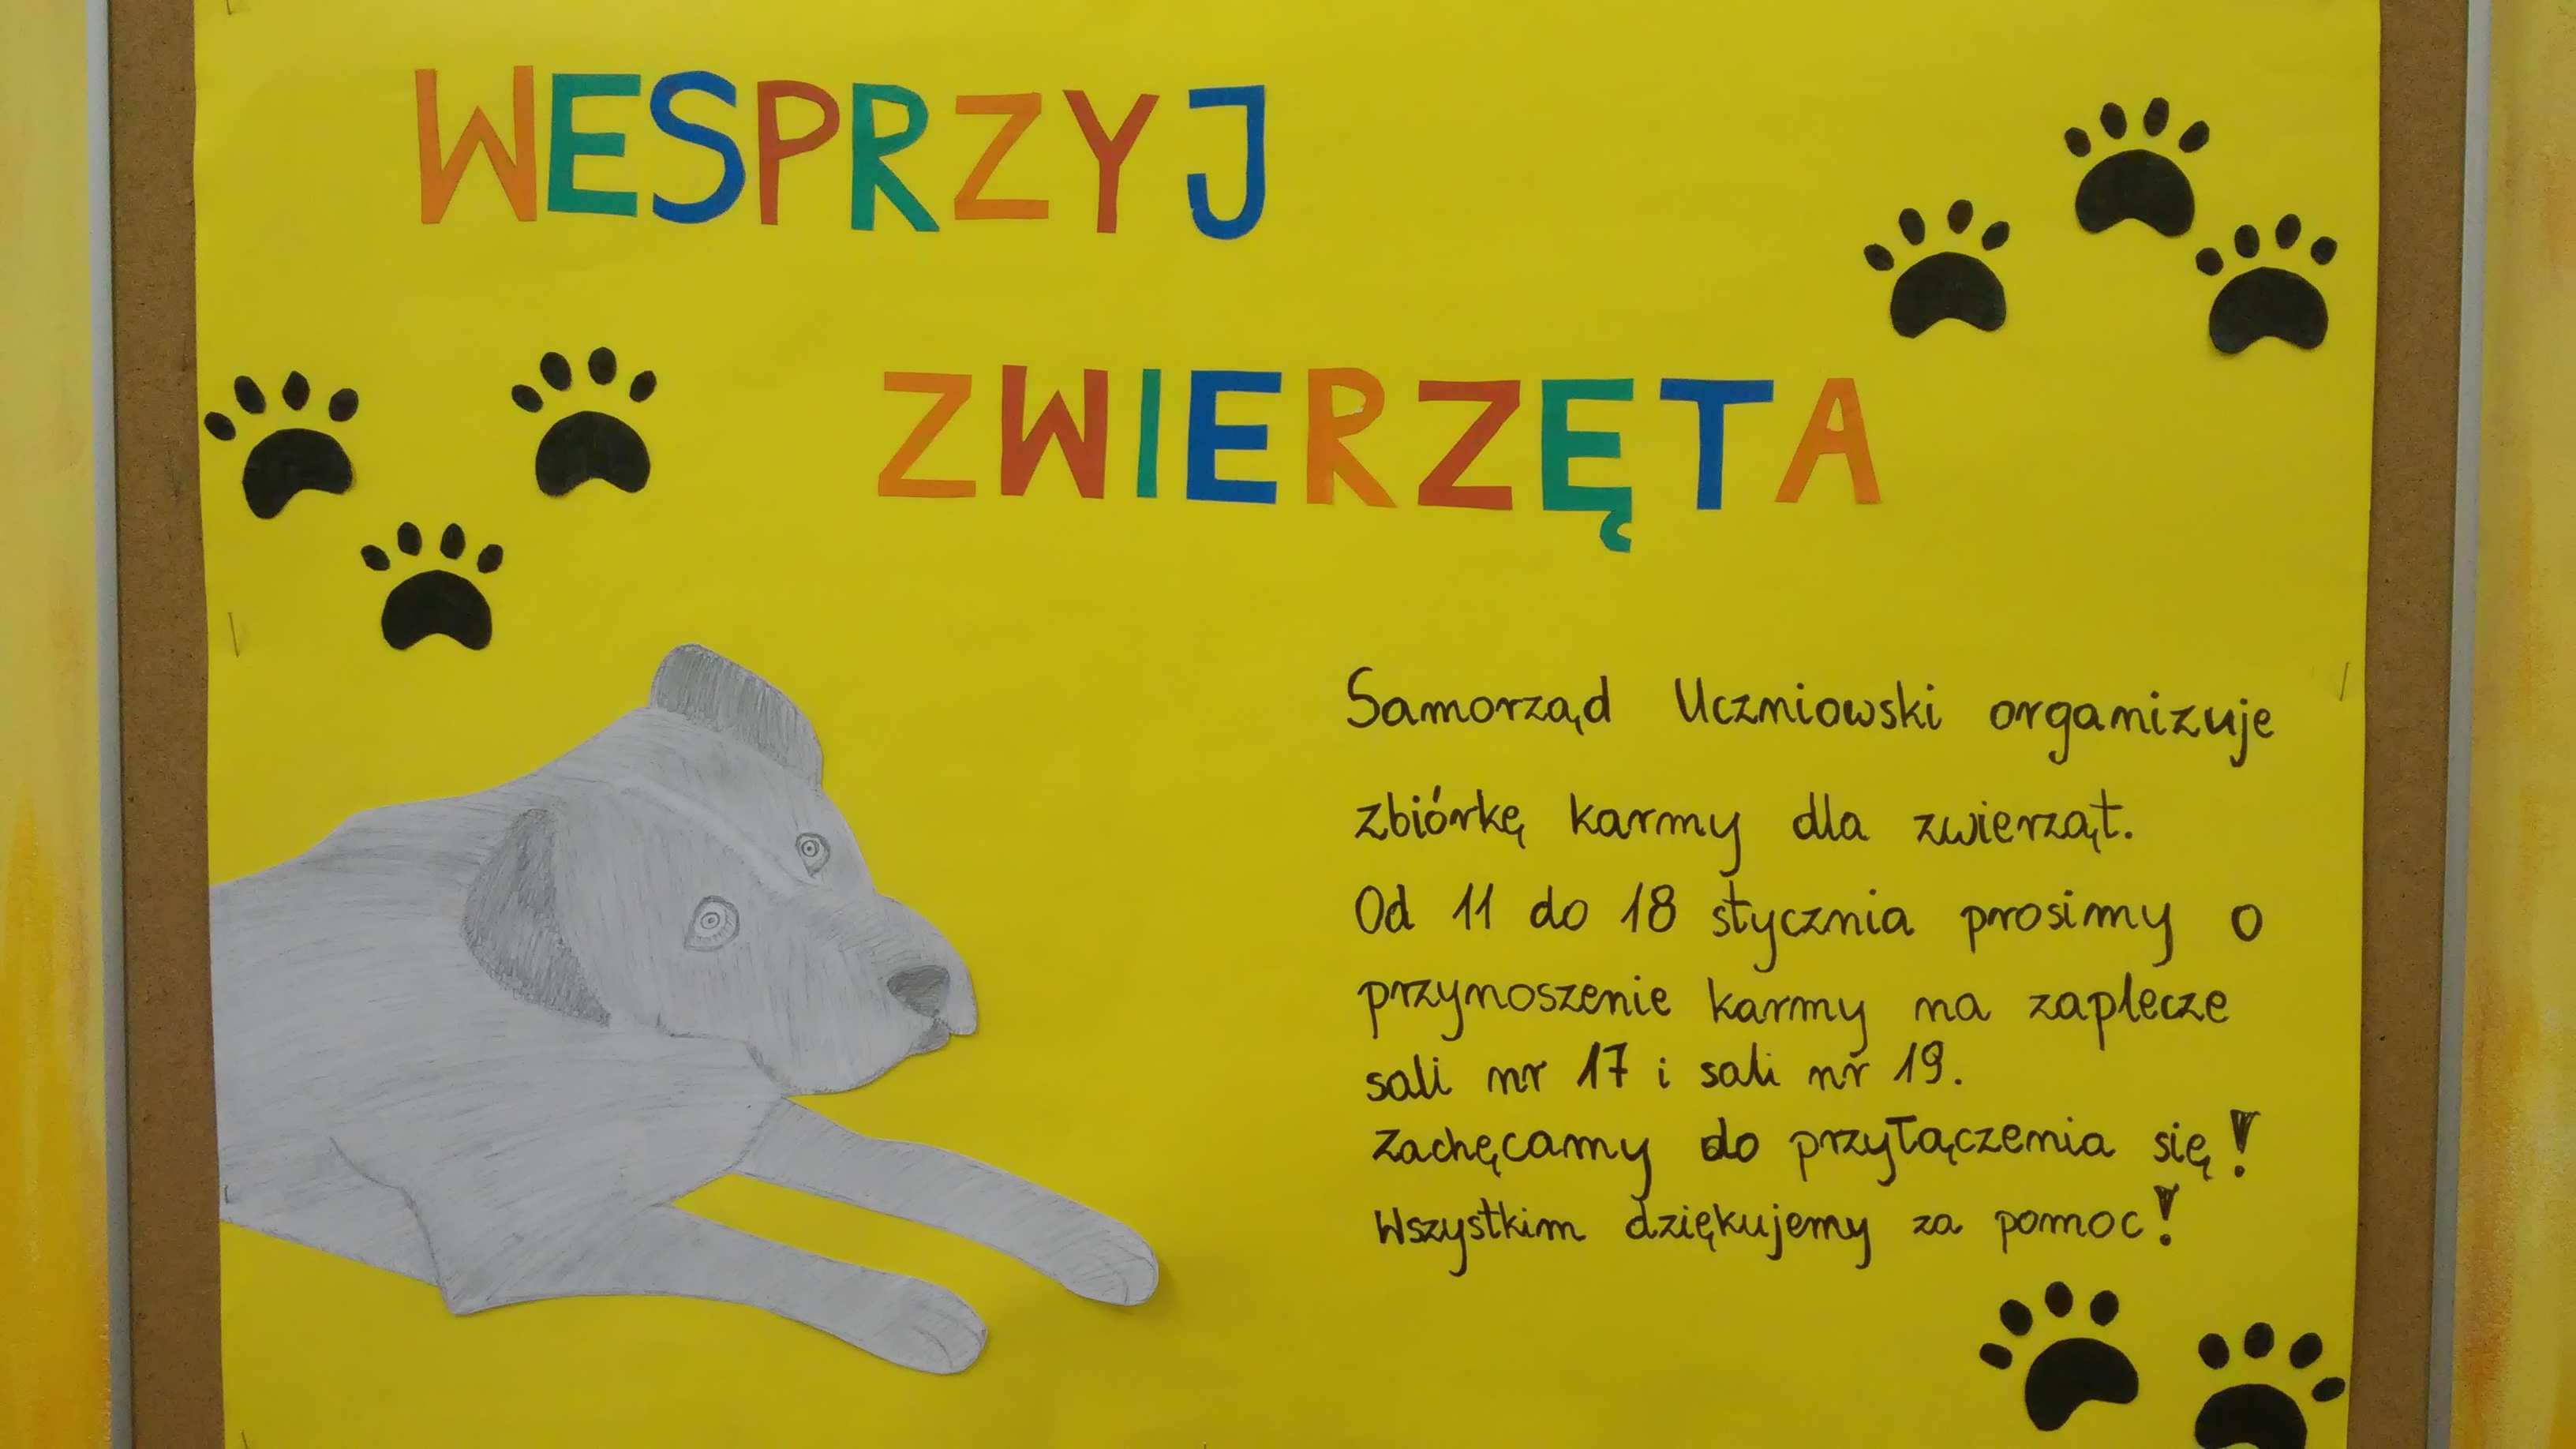 WESPRZYJ
ZWIERZĘTA
Samorząd Uczniowski organizuje
zbiórkę karmy dla zwierząt.
Od 11 do 18 stycznia prosimy o
przynoszenie karmy na zaplecze
sali nr 17 i sali nr 19.
Zachęcamy do przyłączenia się!
Wszystkim dziękujemy za pomoc!